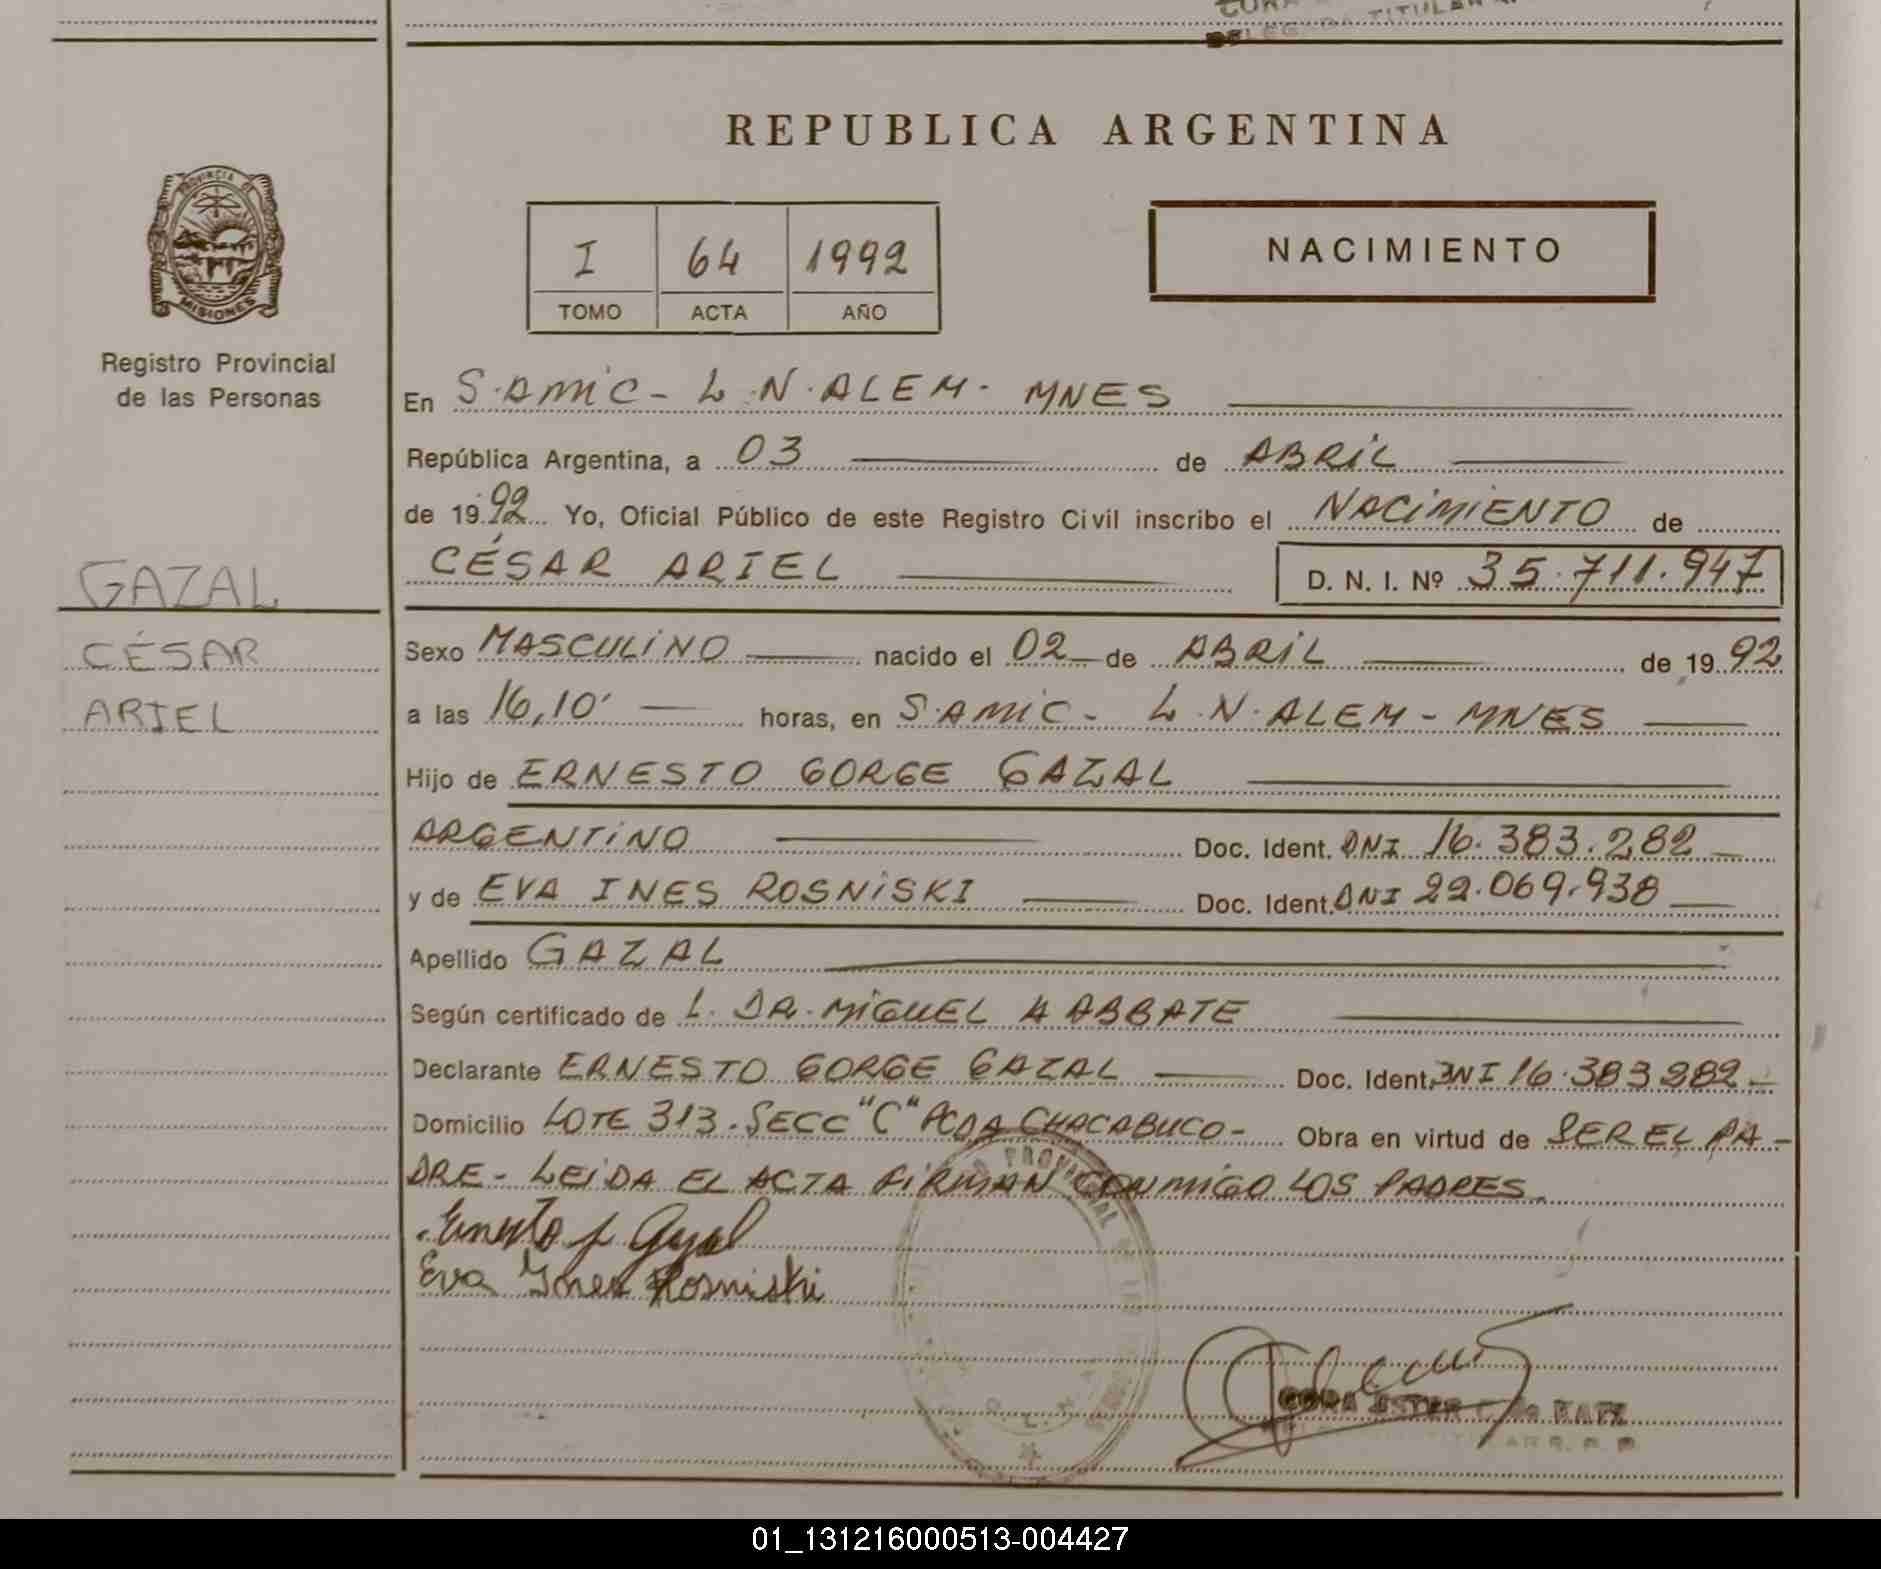 DELEGADA TITULAR
REPUBLICA ARGENTINA
PROVINCIA DE
MISIONES
Registro Provincial
de las Personas
I 64 1992
TOMO ACTA AÑO
NACIMIENTO
En S.AMIC - L.N.ALEM - MNES
República Argentina, a 03 de ABRIL
de 1992 Yo, Oficial Público de este Registro Civil inscribo el NACIMIENTO de
CÉSAR ARIEL D. N. I. Nº 35.711.947
GAZAL
CÉSAR
ARIEL
Sexo MASCULINO nacido el 02 de ABRIL de 1992
a las 16,10' horas, en S.AMIC - L.N.ALEM - MNES
Hijo de ERNESTO GORGE GAZAL
ARGENTINO Doc. Ident. DNI 16.383.282
y de EVA INES ROSNISKI Doc. Ident. DNI 22.069.938
Apellido GAZAL
Según certificado de L. DR. MIGUEL A ABBATE
Declarante ERNESTO GORGE GAZAL Doc. Ident. DNI 16.383282
Domicilio LOTE 313. SECC "C" PCDA CHACABUCO - Obra en virtud de SER EL PA-
DRE - LEIDA EL ACTA FIRMAN CONMIGO LOS PADRES
Ernesto J Gazal
Eva Ynes Rosniski
PROVINCIAL
CORA ESTER
01_131216000513-004427